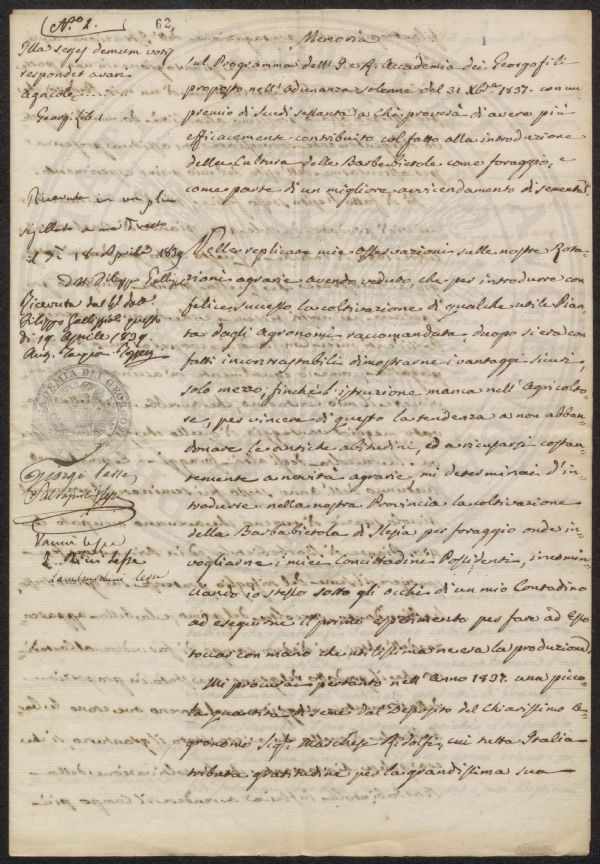 N.º 2.
62
1
Illa seges demum votis
respondet avari
Agricolæ
Georg. Lib. 1.
Memoria
sul Programma dell'I. e R. Accademia dei Georgofili
proposto nell'adunanza solenne del 31 Xbre 1837. con un
premio di Scudi sessanta a chi proverà di avere più
efficacemente contribuito col fatto alla introduzione
della Cultura delle Barbebietole come foraggio, e
come parte di un migliore avvicendamento di sementa.
Ricevuta in un plico
sigillato a me diretto
il dì 18 Aprile 1839
Dott. Filippo Gallizioli
Ricevuta dal Sig. Dott.
Filippo Gallizioli questo
dì 19. Aprile 1839
Nelle replicate mie osservazioni sulle nostre Rota-
zioni agrarie avendo veduto, che per introdurre con
felice successo la coltivazione di qualche utile Pian-
ta dagli Agronomi raccomandata, duopo si era con
fatti incontrastabili dimostrarne i vantaggi sicuri,
solo mezzo, finchè l'istruzione manca nell'Agricolto-
re, per vincere di questo la tendenza a non abban-
donare le antiche abitudini, ed a ricusarsi costan-
temente a novità agrarie, mi determinai d'in-
trodurre nella nostra Provincia la coltivazione
della Barbabietola di Slesia per foraggio onde in-
vogliarne i miei Concittadini Possidenti, incomin-
ciando io stesso sotto gli occhi di un mio Contadino
ad eseguirne il primo esperimento per fare ad Esso
toccar con mano che utilissima ne era la produzione.
Mi procurai pertanto nell'anno 1837. una picco-
la quantità di seme dal Deposito del Chiarissimo A-
gronomo Sig.r Marchese Ridolfi, cui tutta Italia
tributa gratitudine per la grandissima sua
ACCADEMIA DEI GEORGOFILI
lesse
Vanni lesse
lesse
Lambruschini lesse